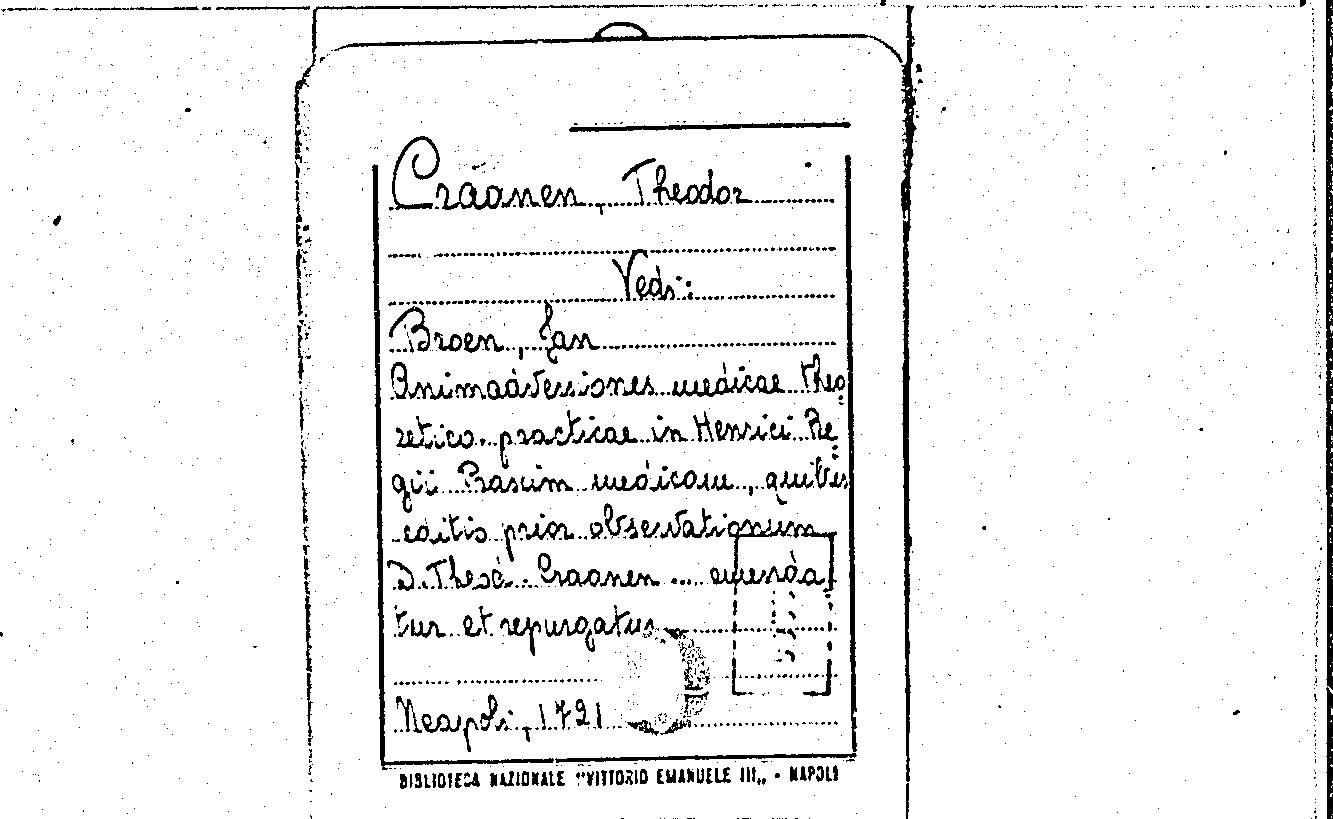 Craanen, Theodor
Vedi:
Broen, Jan
Animadversiones medicae theo
retico-practicae in Henrici Re
gii Praxim medicam, quibus
editis prior observationum
D. Theod. Craanen ... emenda
tur et repurgatur
Neapoli, 1721
BIBLIOTECA NAZIONALE "VITTORIO EMANUELE III„ - NAPOLI